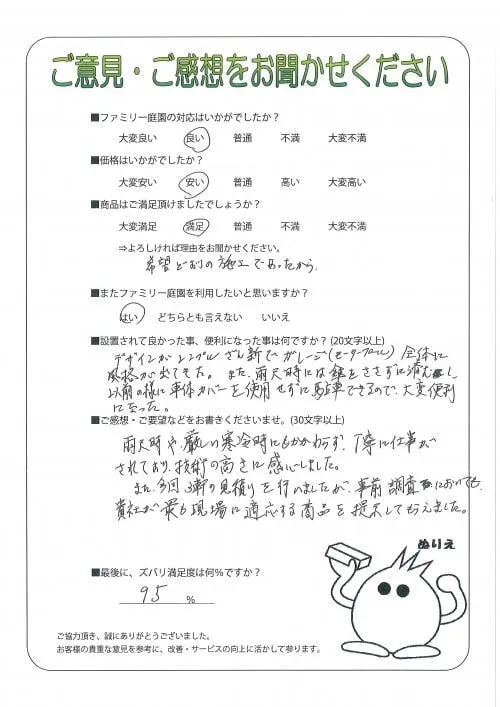 ご意見・ご感想をお聞かせください
■ファミリー庭園の対応はいかがでしたか？
大変良い 良い 普通 不満 大変不満
■価格はいかがでしたか？
大変安い 安い 普通 高い 大変高い
■商品はご満足頂けましたでしょうか？
大変満足 満足 普通 不満 大変不満
⇒よろしければ理由をお聞かせください。
希望どおりの施工であったから。
■またファミリー庭園を利用したいと思いますか？
はい どちらとも言えない いいえ
■設置されて良かった事、便利になった事は何ですか？(20文字以上)
デザインがシンプルざん新でガレージ 全体に
風格が出てきた。また、雨天時には傘をささずに済むし
以前の様に車体カバーを使用せずに駐車できるので、大変便利
になった。
■ご感想・ご要望などをお書きくださいませ。(30文字以上)
雨天時や厳しい寒冷時にもかかわらず、丁寧に仕事が
されており、技術の高さに感心しました。
また、今回3軒の見積りを行いましたが、事前調査においても、
貴社が最も現場に適応する商品を提示してもらえました。
ぬりえ
■最後に、ズバリ満足度は何％ですか？
95 %
ご協力頂き、誠にありがとうございました。
お客様の貴重な意見を参考に、改善・サービスの向上に活かして参ります。